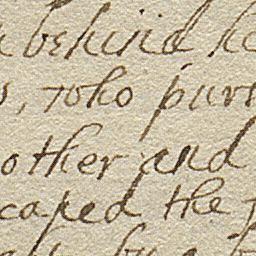 behind he
, who purs
other and
caped the
by a